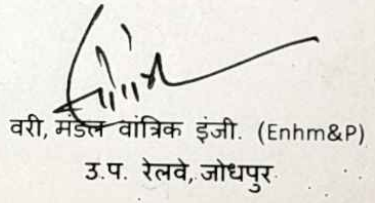 वरी, मंडल वांत्रिक इंजी. (Enhm&P)
उ.प. रेलवे, जोधपुर